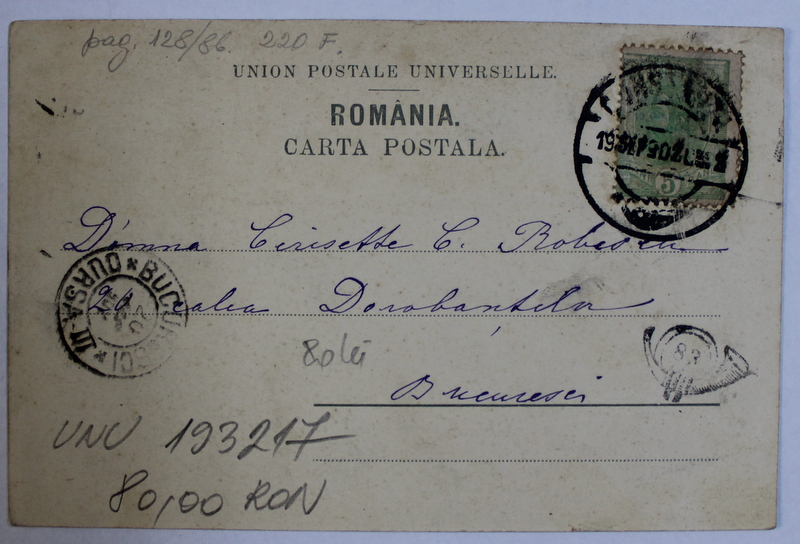 pag. 128/86. 220 F.
UNION POSTALE UNIVERSELLE.
ROMÂNIA.
CARTA POSTALA.
19 SEP 902
5
Domna Cirisette C. Robescu
96 Calea Dorobanților
BUCURESCI * CURSA-III *
83
80 lei
Bucuresci
UNU 193217
80,00 RON